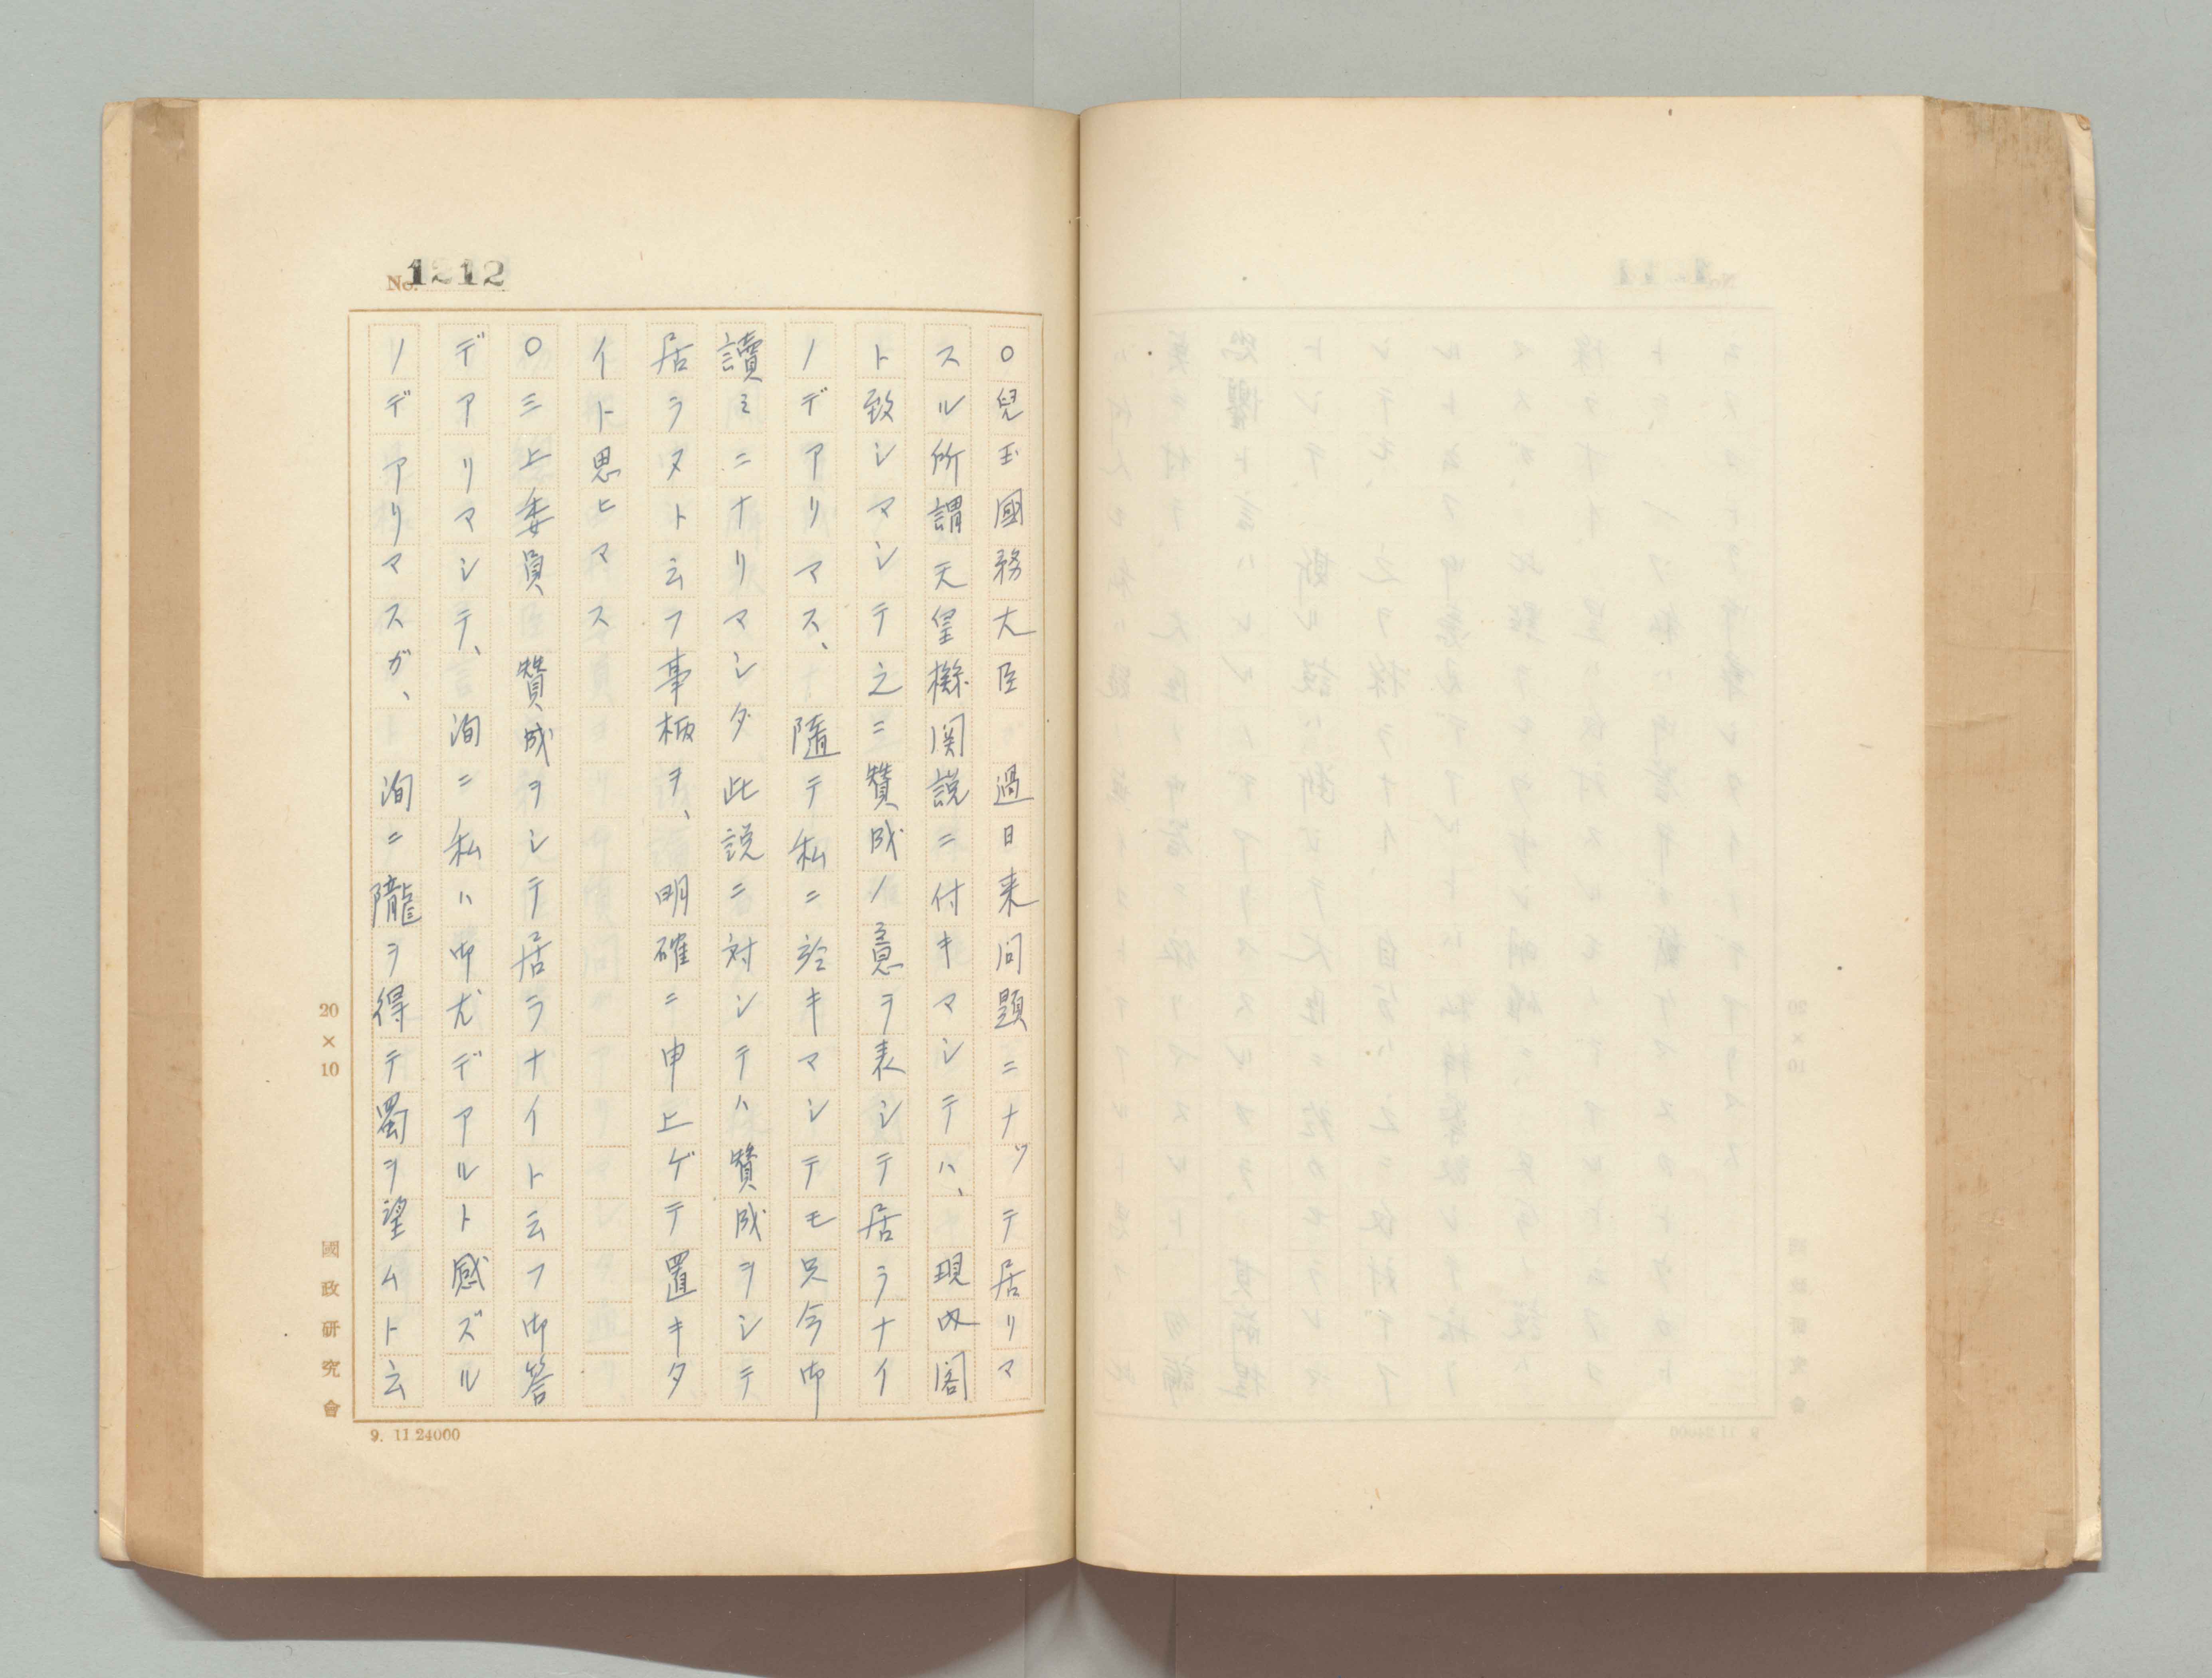 No. 1212
○兒玉國務大臣　過日来問題ニナツテ居リマ
スル所謂天皇機関説ニ付キマシテハ、現内閣
ト致シマシテ之ニ賛成ノ意ヲ表シテ居ラナイ
ノデアリマス、隨テ私ニ於キマシテモ只今御
讀ミニナリマシタ此説ニ対シテハ賛成ヲシテ
居ラヌト云フ事柄ヲ、明確ニ申上ゲテ置キタ
イト思ヒマス
○三上委員　賛成ヲシテ居ラナイト云フ御答
デアリマシテ、洵ニ私ハ御尤デアルト感ズル
ノデアリマスガ、洵ニ隴ヲ得テ蜀ヲ望ムト云
20×10
國政研究會
9. 11.24000